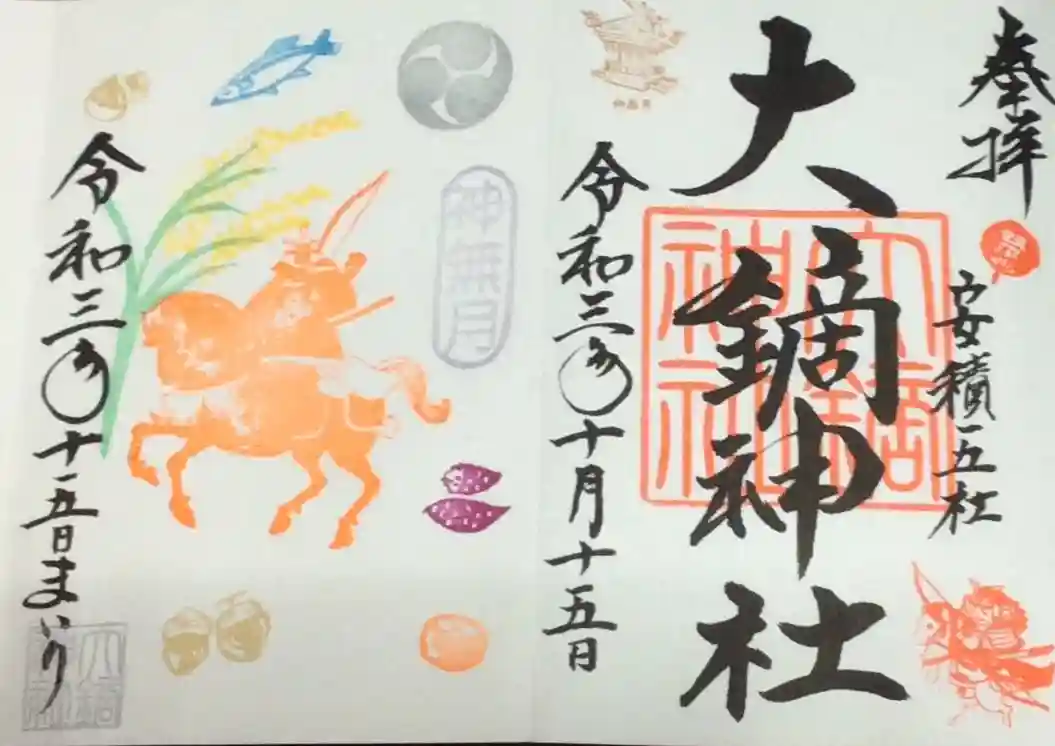 奉拝
安積五社
大鏑神社
大鏑
神社
令和三年十月十五日
神無月
令和三年十五日まいり
大鏑
神社